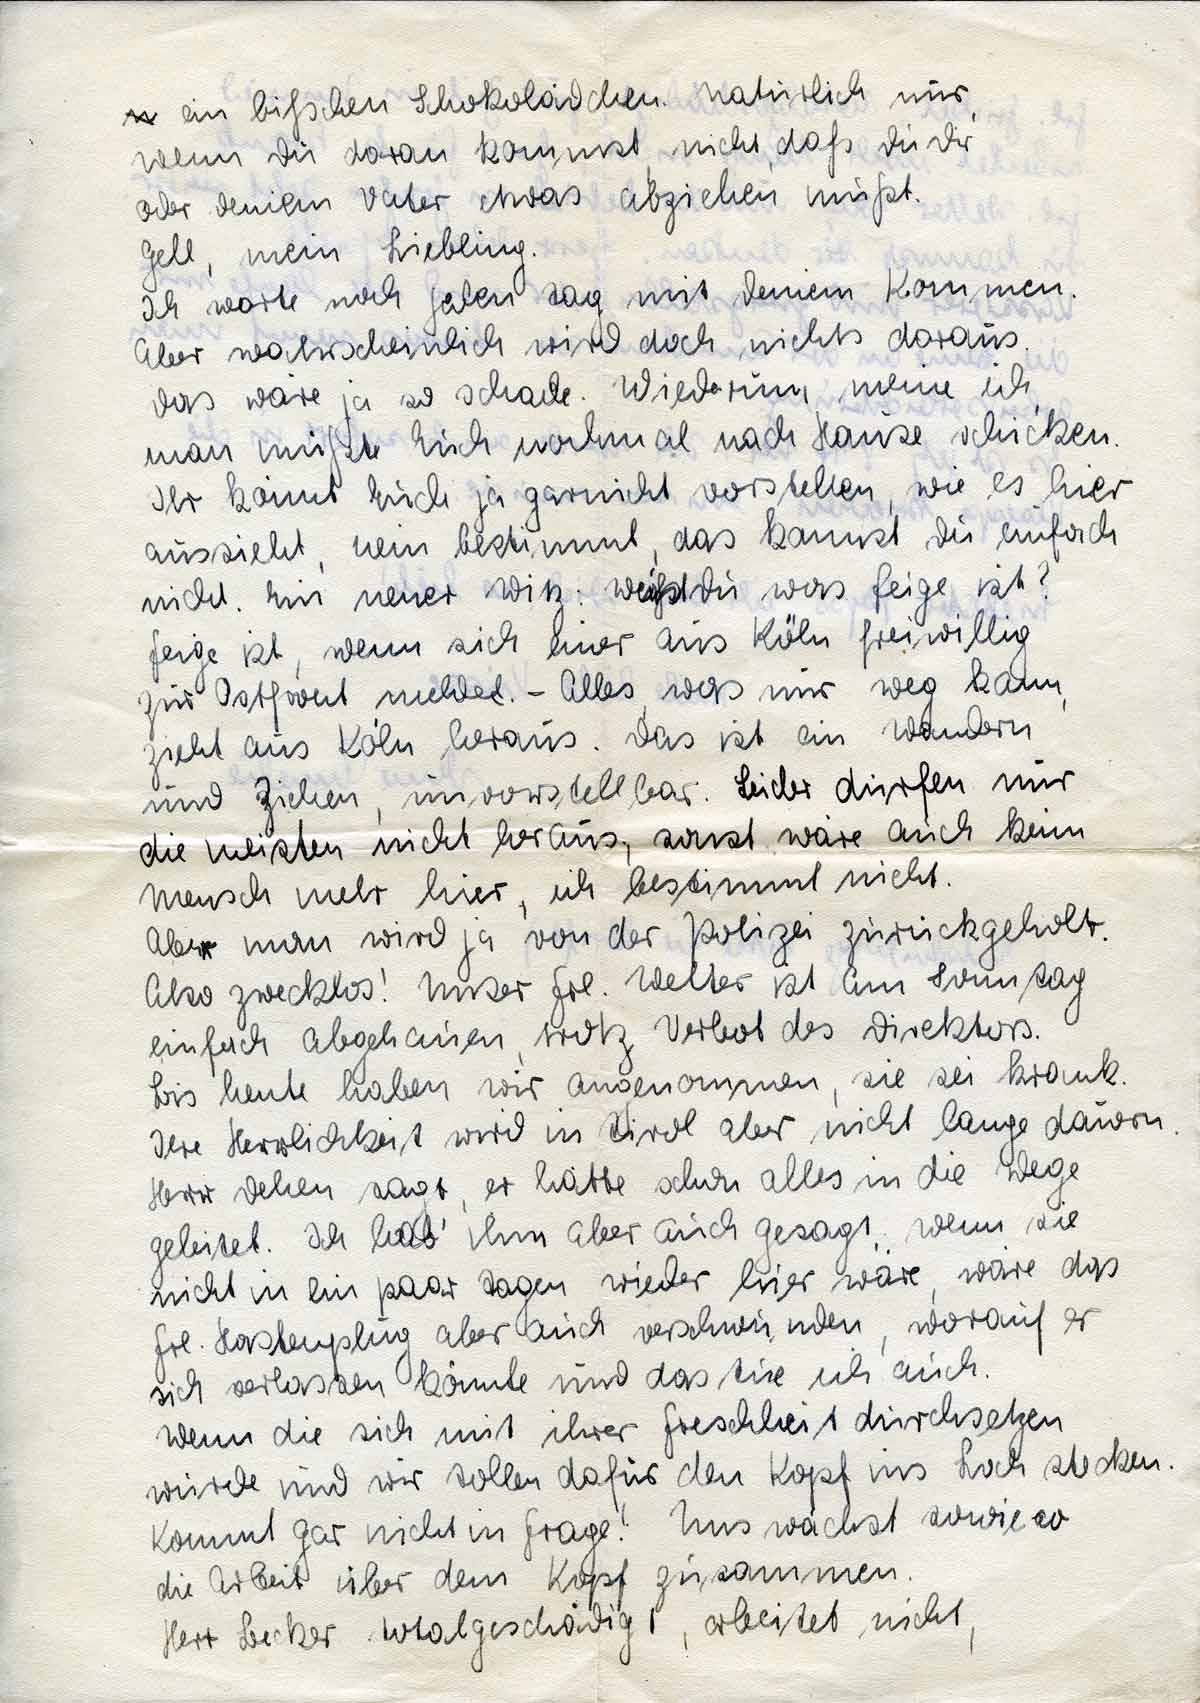 ein bißchen Schokolädchen. Natürlich nur,
wenn Du daran kommst, nicht, daß Du Dir
oder Deinem Vater etwas abziehen mußt.
Gell, mein Liebling.
Ich warte noch jeden Tag mit Deinem Kommen.
Aber wahrscheinlich wird doch nichts daraus.
Das wäre ja so schade. Wiederum, meine ich,
man müßte Euch nochmal nach Hause schicken.
Ihr könnt Euch ja garnicht vorstellen, wie es hier
aussieht, nein bestimmt, das kannst Du einfach
nicht. Ein neuer Witz: Weißt Du was feige ist?
Feige ist, wenn sich einer aus Köln freiwillig
zur Ostfront meldet. - Alles, was nur weg kann,
zieht aus Köln heraus. Das ist ein Wandern
und Ziehen, unvorstellbar. Leider dürfen nur
die meisten nicht heraus, sonst wäre auch kein
Mensch mehr hier, ich bestimmt nicht.
Aber man wird ja von der Polizei zurückgeholt.
Also zwecklos! Unser Frl. Welter ist am Sonntag
einfach abgehauen, trotz Verbot des Direktors.
Bis heute haben wir angenommen, sie sei krank.
Ihre Herrlichkeit wird in Tirol aber nicht lange dauern.
Herr Dehen sagt, er hätte schon alles in die Wege
geleitet. Ich hab' ihm aber auch gesagt, wenn sie
nicht in ein paar Tagen wieder hier wäre, wäre das
Frl. Hastenplug aber auch verschwunden, worauf er
sich verlassen könnte und das tue ich auch.
Wenn die sich mit ihrer Freschheit durchsetzen
würde und wir sollen dafür den Kopf ins Loch stecken.
Kommt gar nicht in Frage! Uns wächst sowieso
die Arbeit über dem Kopf zusammen.
Herr Becker totalgeschädigt, arbeitet nicht,